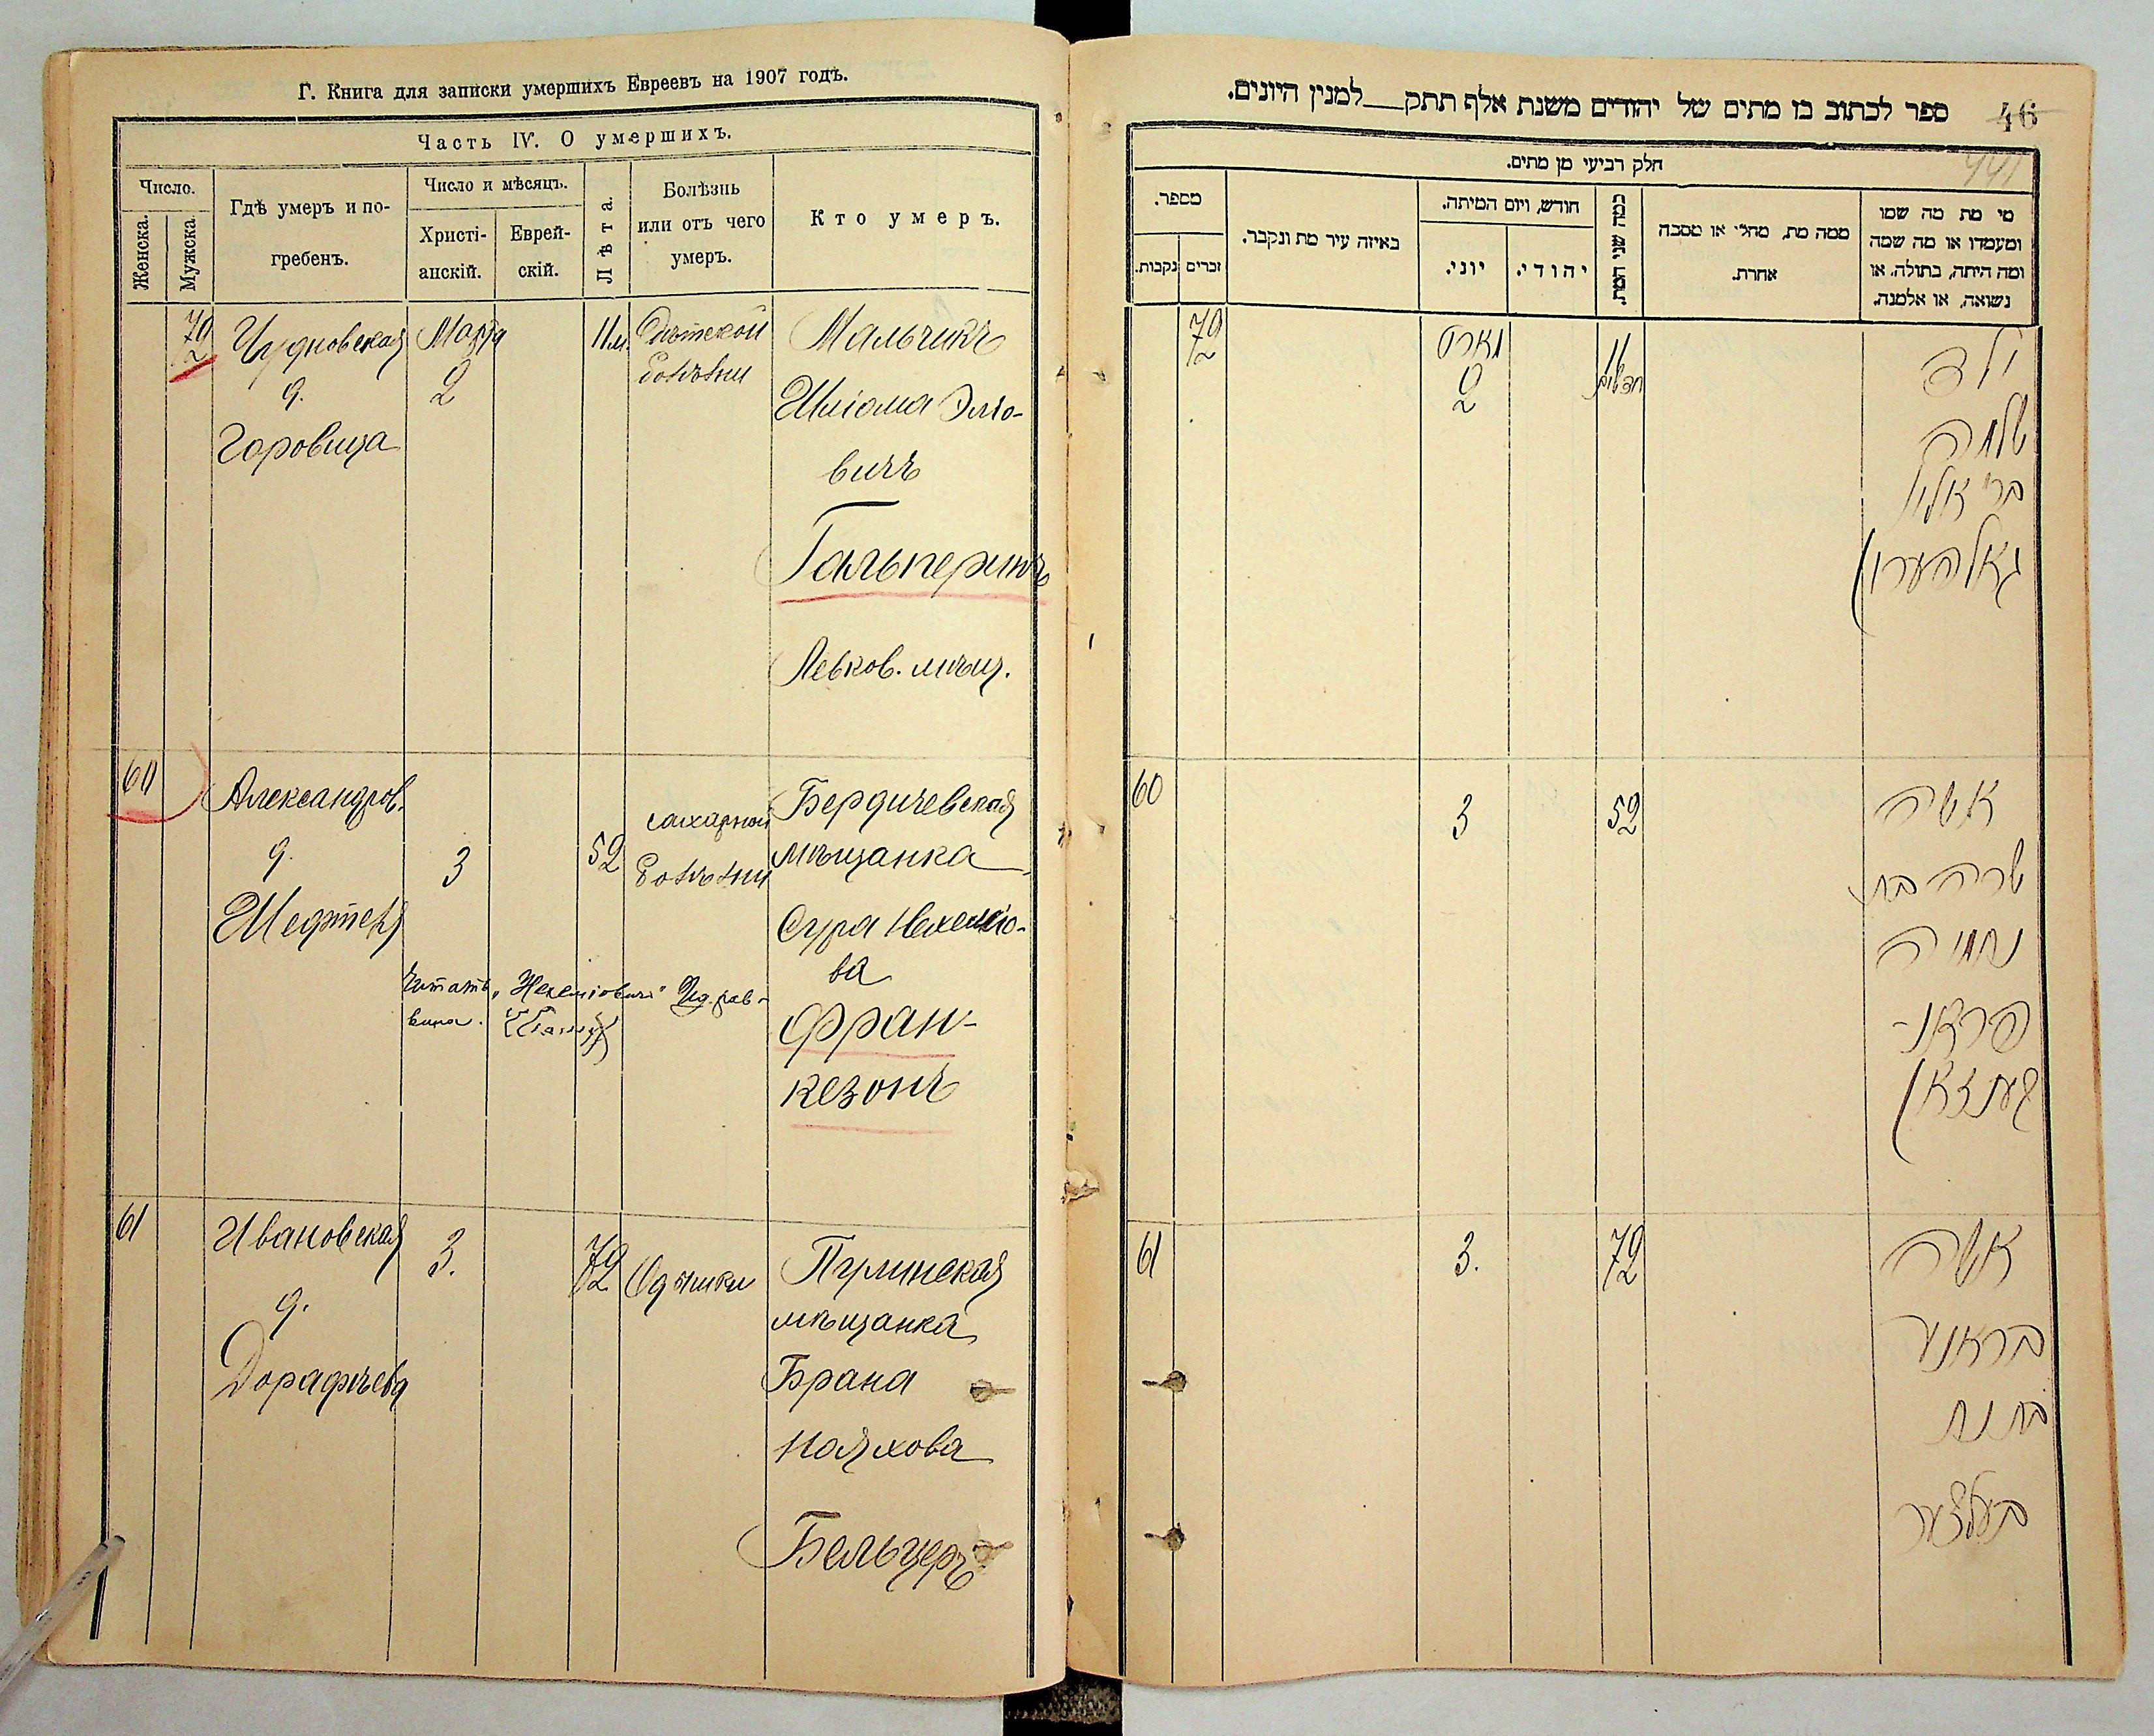 Г. Книга для записки умершихъ Евреевъ на 1907 годъ.
Часть IV. О умершихъ.
Число.
Женска.
Мужска.
Гдѣ умеръ и по-
гребенъ.
Число и мѣсяцъ.
Христі-
анскій.
Еврей-
скій.
Лѣта
Болѣзнь
или отъ чего
умеръ.
Кто умеръ.
72
Чудновская
д.
Горовица
Марта
2
11 м.
Дѣтской
болѣзни
Мальчикъ
Шліома Эліо-
вичъ
Гальперинъ
Левков. мѣщ.
60
Александров.
д.
Шефтеля
3
52
сахарной
болѣзни
Бердичевская
мѣщанка
Сура Нехеміо-
ва
Фран-
кезонъ
Читать „Нехеміовичъ"
61
Ивановская
д.
Дорафѣева
3.
72
Одышки
Пулинская
мѣщанка
Брана
Нояхова
Бельцеръ
ספר לכתוב בו מתים של יהודים משנת אלף תתק למנין היונים.
46
441
חלק רביעי מן מתים.
מספר.
נקבות.
זכרים
באיזה עיר מת ונקבר.
חודש, ויום המיתה.
יוני.
יהודי.
כמה שני המת.
ממה מת, מחלי או מסבה
אחרת.
מי מת מה שמו
ומעמדו או מה שמה
ומה היתה, בתולה, או
נשואה, או אלמנה.
72
מארט
2
11
חדשים
ילד
שלמה
בר' אליו
גאלפערין
60
3
52
אשה
שרה בת
נחמיה
פראנ-
קעזאן
61
3.
72
אשה
בראנע
בת נח
בעלצער